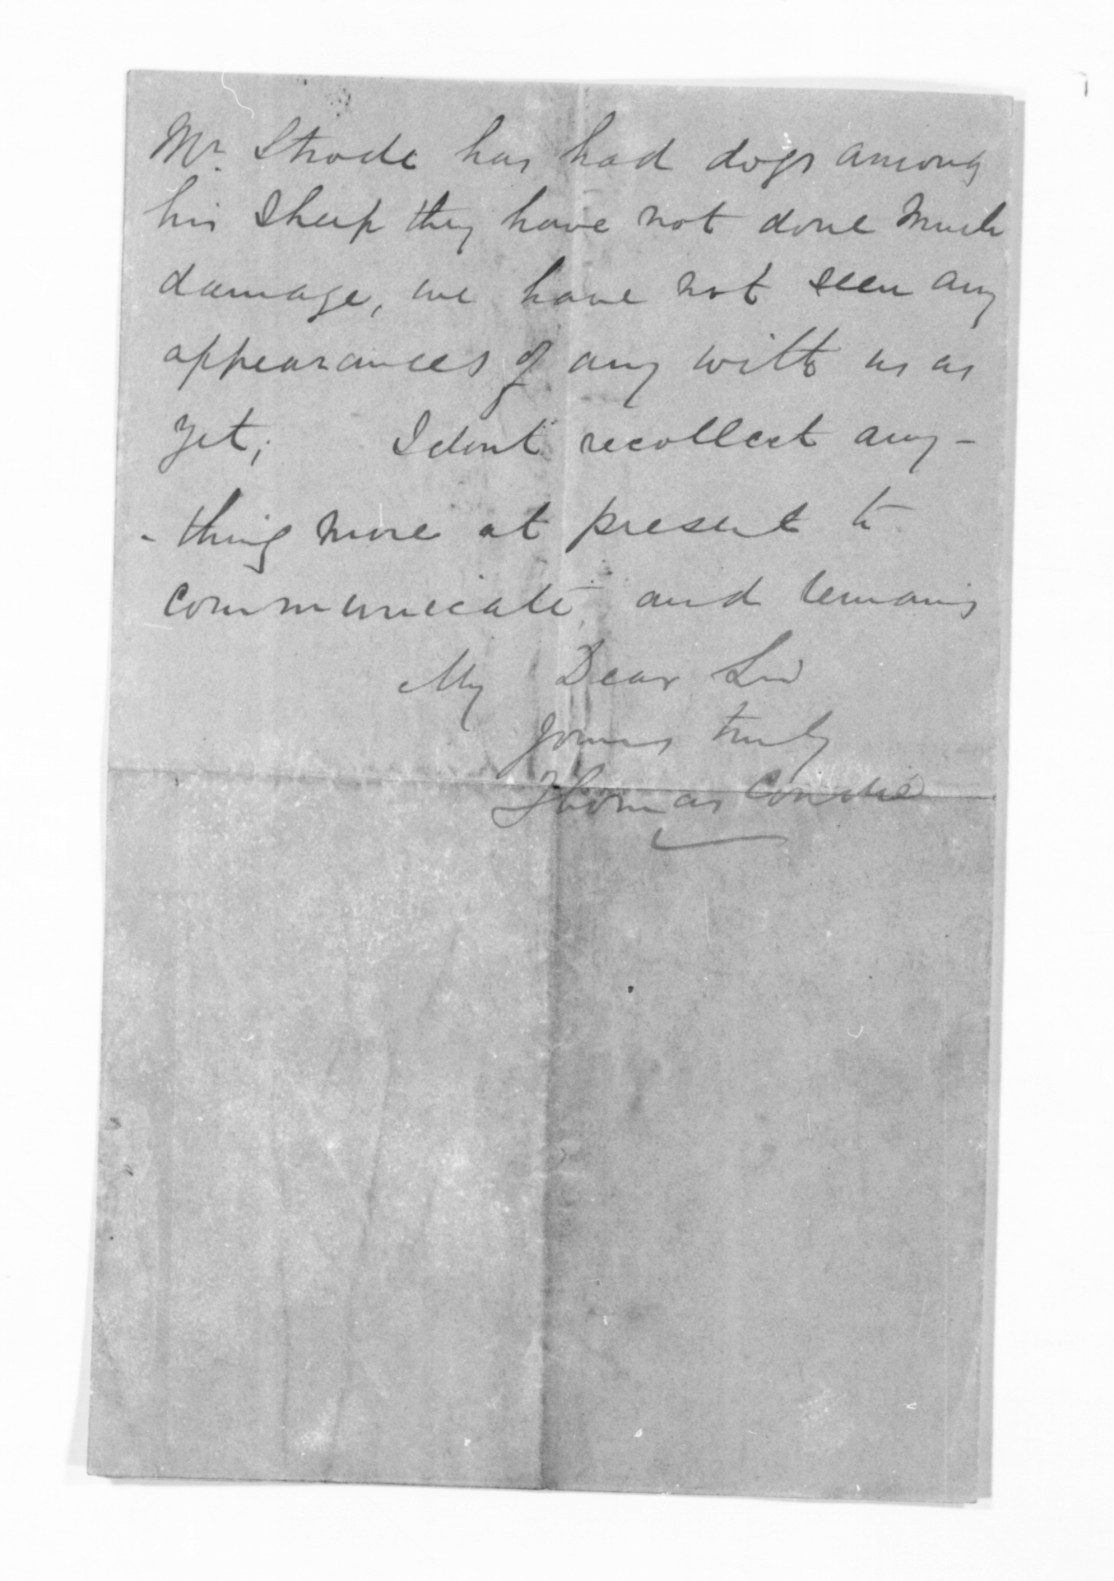 Mr Strode has had dogs among
his Sheep they have not done Much
damage, we have not seen any
appearances of any with us as
yet; I dont recollect any-
-thing more at present to
communicate, and remains
My Dear Sir
yours truly
Thomas